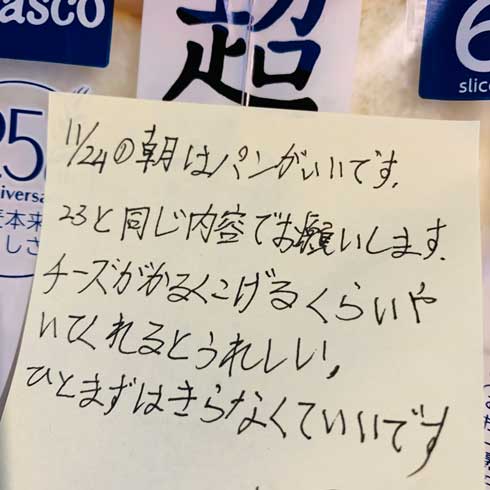 asco
超
6
slice
25
niversa
本来
しさ
11/24の朝はパンがいいです.
23と同じ内容でお願いします.
チーズがかるくこげるくらいや
いてくれるとうれしい,
ひとまずはきらなくていいです